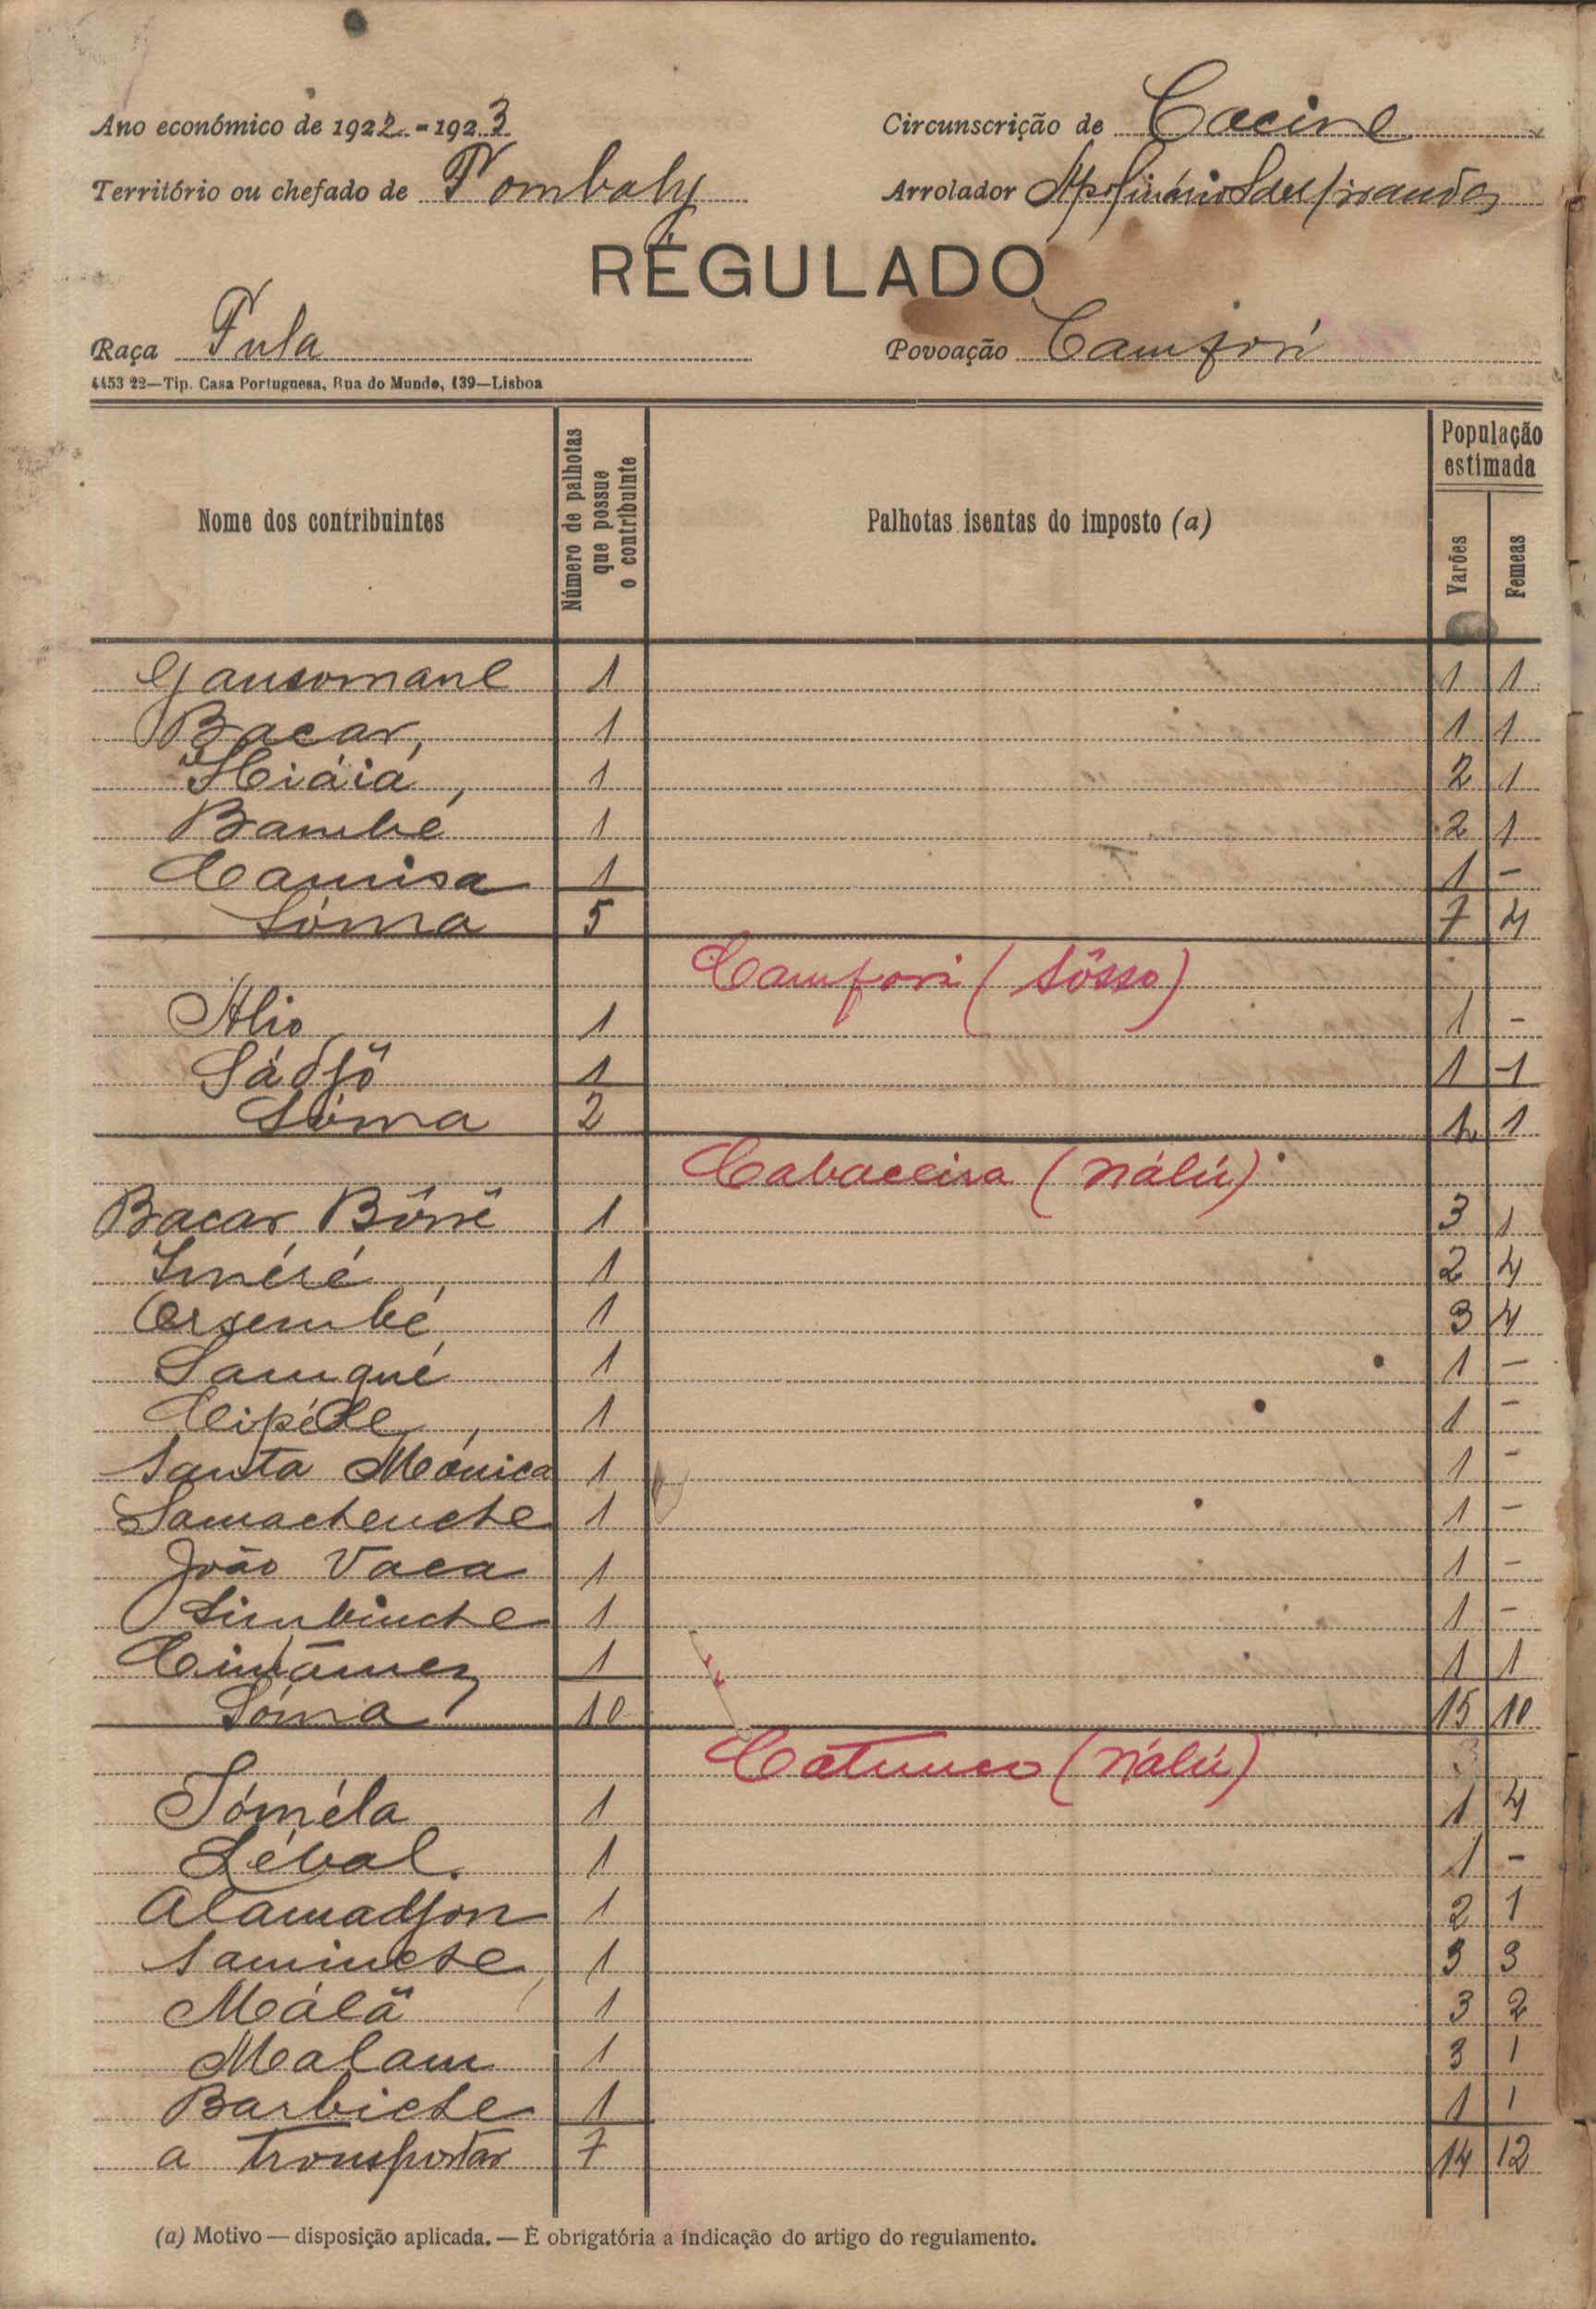 Ano económico de 1922-1923 Circunscrição de Cacine
Território ou chefado de Tombaly Arrolador
REGULADO
Raça Fula Povoação Camfori
4453 22—Tip. Casa Portuguesa, Rua do Mundo, 139—Lisboa
Nome dos contribuintes Número de palhotas que possue o contribuinte Palhotas isentas do imposto (a) População estimada Varões Femeas
Gansomane 1 1 1
Bacar 1 1 1
1 2 1
Bambé 1 2 1
Camisa 1 1 -
Sóma 5 7 4
Camfori (Sôsso)
Alio 1 1 -
Sádjô 1 1 -1
Sóma 2 2 1
Cabaceira (Nálú)
Bacar Bôrrê 1 3 1
1 2 4
1 3 4
Samqué 1 1 -
1 1 -
Santa Mónica 1 1 -
Samachenche 1 1 -
João Vaca 1 1 -
Simbinche 1 1 -
1 1 1
Sóma 10 15 10
Catunco (Nálú)
Tóméla 1 1 4
Léval 1 1 -
Alamadjon 1 2 1
1 3 3
Málã 1 3 2
Malam 1 3 1
1 1 1
a transportar 7 14 12
(a) Motivo — disposição aplicada. — É obrigatória a indicação do artigo do regulamento.